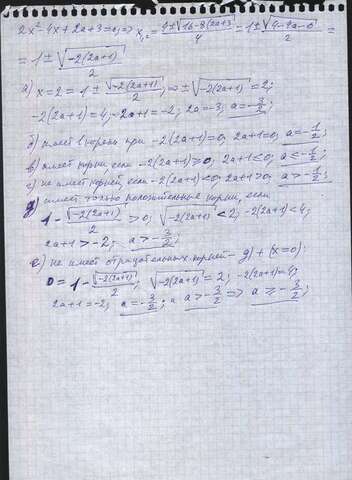 2x² - 4x + 2a + 3 = 0; => x₁,₂ = (4 ± √(16 - 8(2a+3)))/4 = 1 ± √(4 - 4a - 6)/2 =
= 1 ± √(-2(2a+1))/2
а) x = 2 = 1 ± √(-2(2a+1))/2; => ± √(-2(2a+1)) = 2;
-2(2a+1) = 4; -2a+1 = -2; 2a = -3; a = -3/2;
б) имеет 1 корень при -2(2a+1) = 0; 2a+1 = 0; a = -1/2;
в) имеет корни, если -2(2a+1) ≥ 0; 2a+1 ≤ 0; a ≤ -1/2;
г) не имеет корней, если -2(2a+1) < 0; 2a+1 > 0; a > -1/2;
д) имеет только положительные корни, если
1 - √(-2(2a+1))/2 > 0; √(-2(2a+1)) < 2; -2(2a+1) < 4;
2a+1 > -2; a > -3/2;
е) не имеет отрицательных корней - д) + (x = 0):
0 = 1 - √(-2(2a+1))/2; √(-2(2a+1)) = 2; -2(2a+1) = 4;
2a+1 = -2; a = -3/2; и a > -3/2 => a ≥ -3/2;